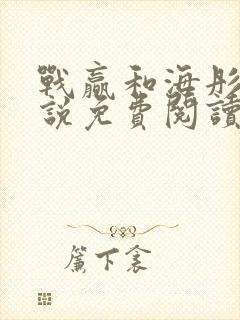 戰贏和海彤
說免費閱讀
簾下衾